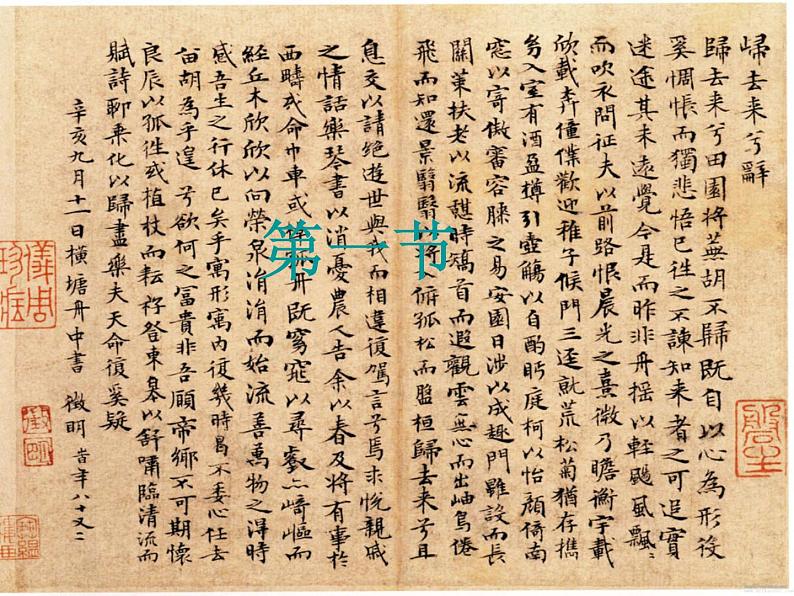 歸去来兮辭
歸去来兮田園将蕪胡不歸既自以心為形役
奚惆悵而獨悲悟已往之不諫知来者之可追實
迷途其未遠覺今是而昨非舟摇以輕颺風飄〻
而吹衣問征夫以前路恨晨光之熹微乃瞻衡宇載
欣載奔僮僕歡迎稚子候門三逕就荒松菊猶存攜
幼入室有酒盈樽引壺觴以自酌眄庭柯以怡顔倚南
窓以寄傲審容膝之易安園日涉以成趣門雖設而長
關策扶老以流憇時矯首而遐觀雲無心而出岫鳥倦
飛而知還景翳翳以将俯孤松而盤桓歸去来兮且
息交以請絶遊世與我而相違復駕言兮焉求悦親戚
之情話樂琴書以消憂農人告余以春及将有事於
西疇或命巾車或棹孤舟既窈窕以尋壑亦崎嶇而
經丘木欣欣以向榮泉涓涓而始流善萬物之得時
感吾生之行休已矣乎寓形寓内復幾時曷不委心任去
留胡為乎遑兮欲何之冨貴非吾願帝鄉不可期懷
良辰以孤往或植杖而耘耔登東皋以舒嘯臨清流而
賦詩聊乗化以歸盡樂夫天命復奚疑
辛亥九月十一日横塘舟中書 徵明 旹年八十又二
第一节